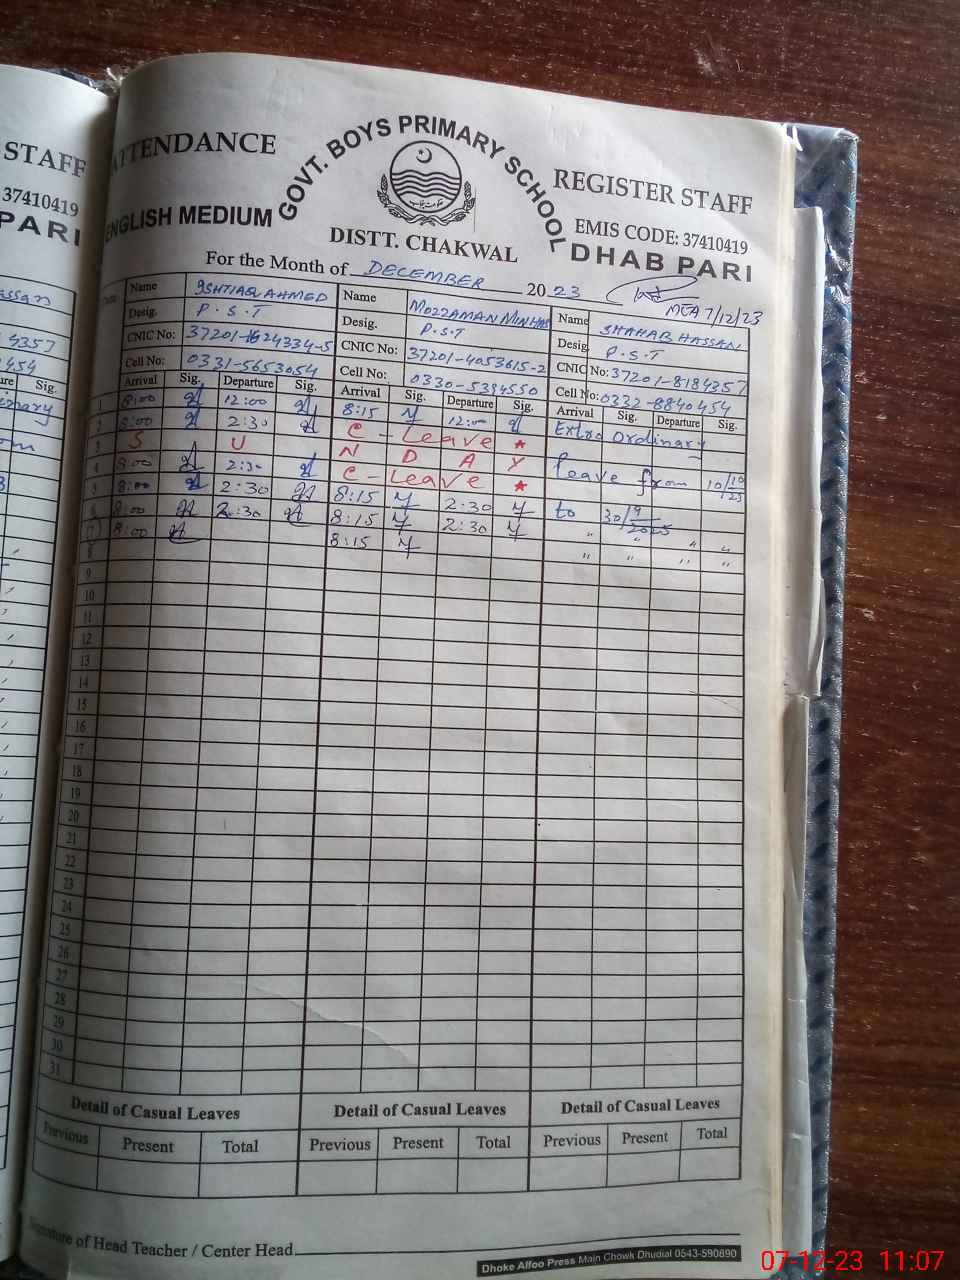 STAFF
37410419
PARI
ATTENDANCE
GOVT. BOYS PRIMARY SCHOOL
REGISTER STAFF
ENGLISH MEDIUM
DISTT. CHAKWAL
EMIS CODE: 37410419
DHAB PARI
For the Month of DECEMBER 2023
MEA 7/12/23
Date
Name ISHTIAQ AHMED Name MOZZAMAN MINHAS Name SHAHAB HASSAN
Desig. P.S.T Desig. P.S.T Desig. P.S.T
CNIC No: 37201-1624334-5 CNIC No: 37201-4053615-2 CNIC No: 37201-8184357
Cell No: 0331-5653054 Cell No: 0330-5394550 Cell No: 0332-8840454
Arrival Sig. Departure Sig. Arrival Sig. Departure Sig. Arrival Sig. Departure Sig.
1 8:00 12:00 8:15 12:00 Extra Ordinary
2 8:00 2:30 C - Leave *
3 S U N D A Y leave from 10/10/23
4 8:00 2:30 C - Leave *
5 8:00 2:30 8:15 2:30 to 30/9/2025
6 8:00 2:30 8:15 2:30 " " " "
7 8:00 8:15 " " " "
8
9
10
11
12
13
14
15
16
17
18
19
20
21
22
23
24
25
26
27
28
29
30
31
Detail of Casual Leaves Detail of Casual Leaves Detail of Casual Leaves
Previous Present Total Previous Present Total Previous Present Total
Signature of Head Teacher / Center Head
Dhoke Alfoo Press Main Chowk Dhudial 0543-590890
07-12-23 11:07